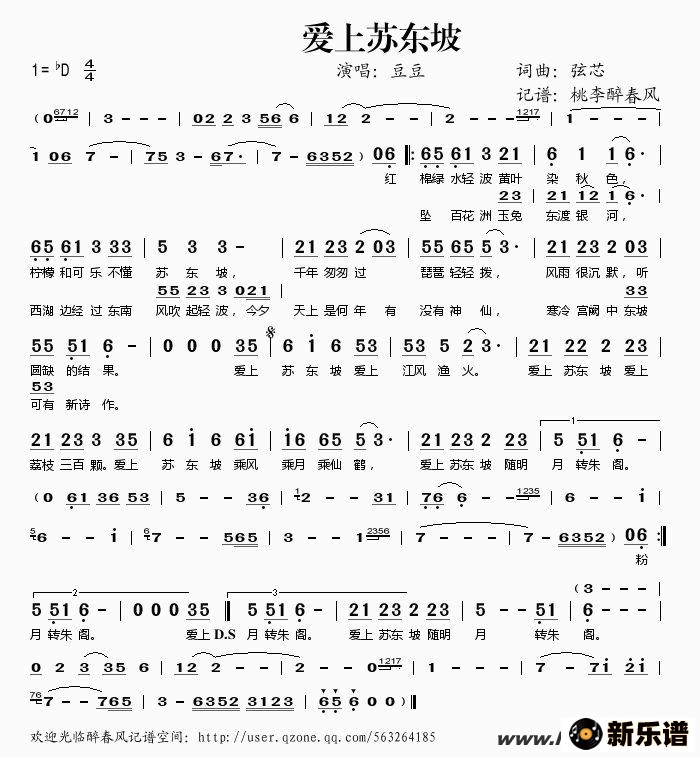 爱上苏东坡
1=♭D 4/4 演唱：豆豆 词曲：弦芯
记谱：桃李醉春风
(0 6712 | 3 - - - | 02 2 3 56 6 | 1 - - 2 | 2 - - 1217 | 1 - - -
1 06 7 - | 75 3 - 67· | 7 - - 6352 ) 06 ‖: 65 61 3 21 | 6 1 1 6· |
红 棉绿 水轻 波 黄叶 染 秋 色，
23 | 21 12 1 6· |
坠 百花 洲 玉兔 东渡 银 河，
65 61 3 33 | 5 3 3 - | 21 23 2 03 | 55 65 5 3· | 21 23 2 03 |
柠檬 和可 乐 不懂 苏 东 坡， 千年 匆匆 过 琵琶 轻轻 拨， 风雨 很沉 默，听
55 23 3 021 | 33
西湖 边经 过 东南 风吹 起轻 波，今夕 天上 是何 年 有 没有 神 仙， 寒冷 宫阙 中 东坡
55 51 6 - | 0 0 0 35 | 6 1 6 53 | 53 5 2 3· | 21 22 2 23 |
圆缺 的结 果。 爱上 苏 东 坡 爱上 江风 渔 火。 爱上 苏东 坡 爱上
53
可有 新诗 作。
21 23 3 35 | 6 1 6 61 | 16 65 5 3· | 21 23 2 23 | 5 51 6 - |
荔枝 三百 颗。爱上 苏 东 坡 乘风 乘月 乘仙 鹤， 爱上 苏东 坡 随明 月 转朱 阁。
(0 61 36 53 | 5 - - 36 | 1 2 - - 31 | 76 6 - - 1235 | 6 - - 1 |
5 6 - - 1 | 6 7 - - 565 | 3 - - 1 2356 | 7 - - - | 7 - - 6352 ) 06 :‖
粉
(3 - - -
5 51 6 - | 0 0 0 35 ‖ 5 51 6 - | 21 23 2 23 | 5 - - 51 | 6 - - - |
月 转朱 阁。 爱上 D.S 月 转朱 阁。 爱上 苏东 坡 随明 月 转朱 阁。
0 2 3 35 6 | 12 2 - - | 2 - - 0 1217 | 1 - - 7 | 7 - 71 21 |
76 7 - - 765 | 3 - 6352 3123 | 65 6 0 0 ) ‖
欢迎光临醉春风记谱空间：http://user.qzone.qq.com/563264185
新乐谱